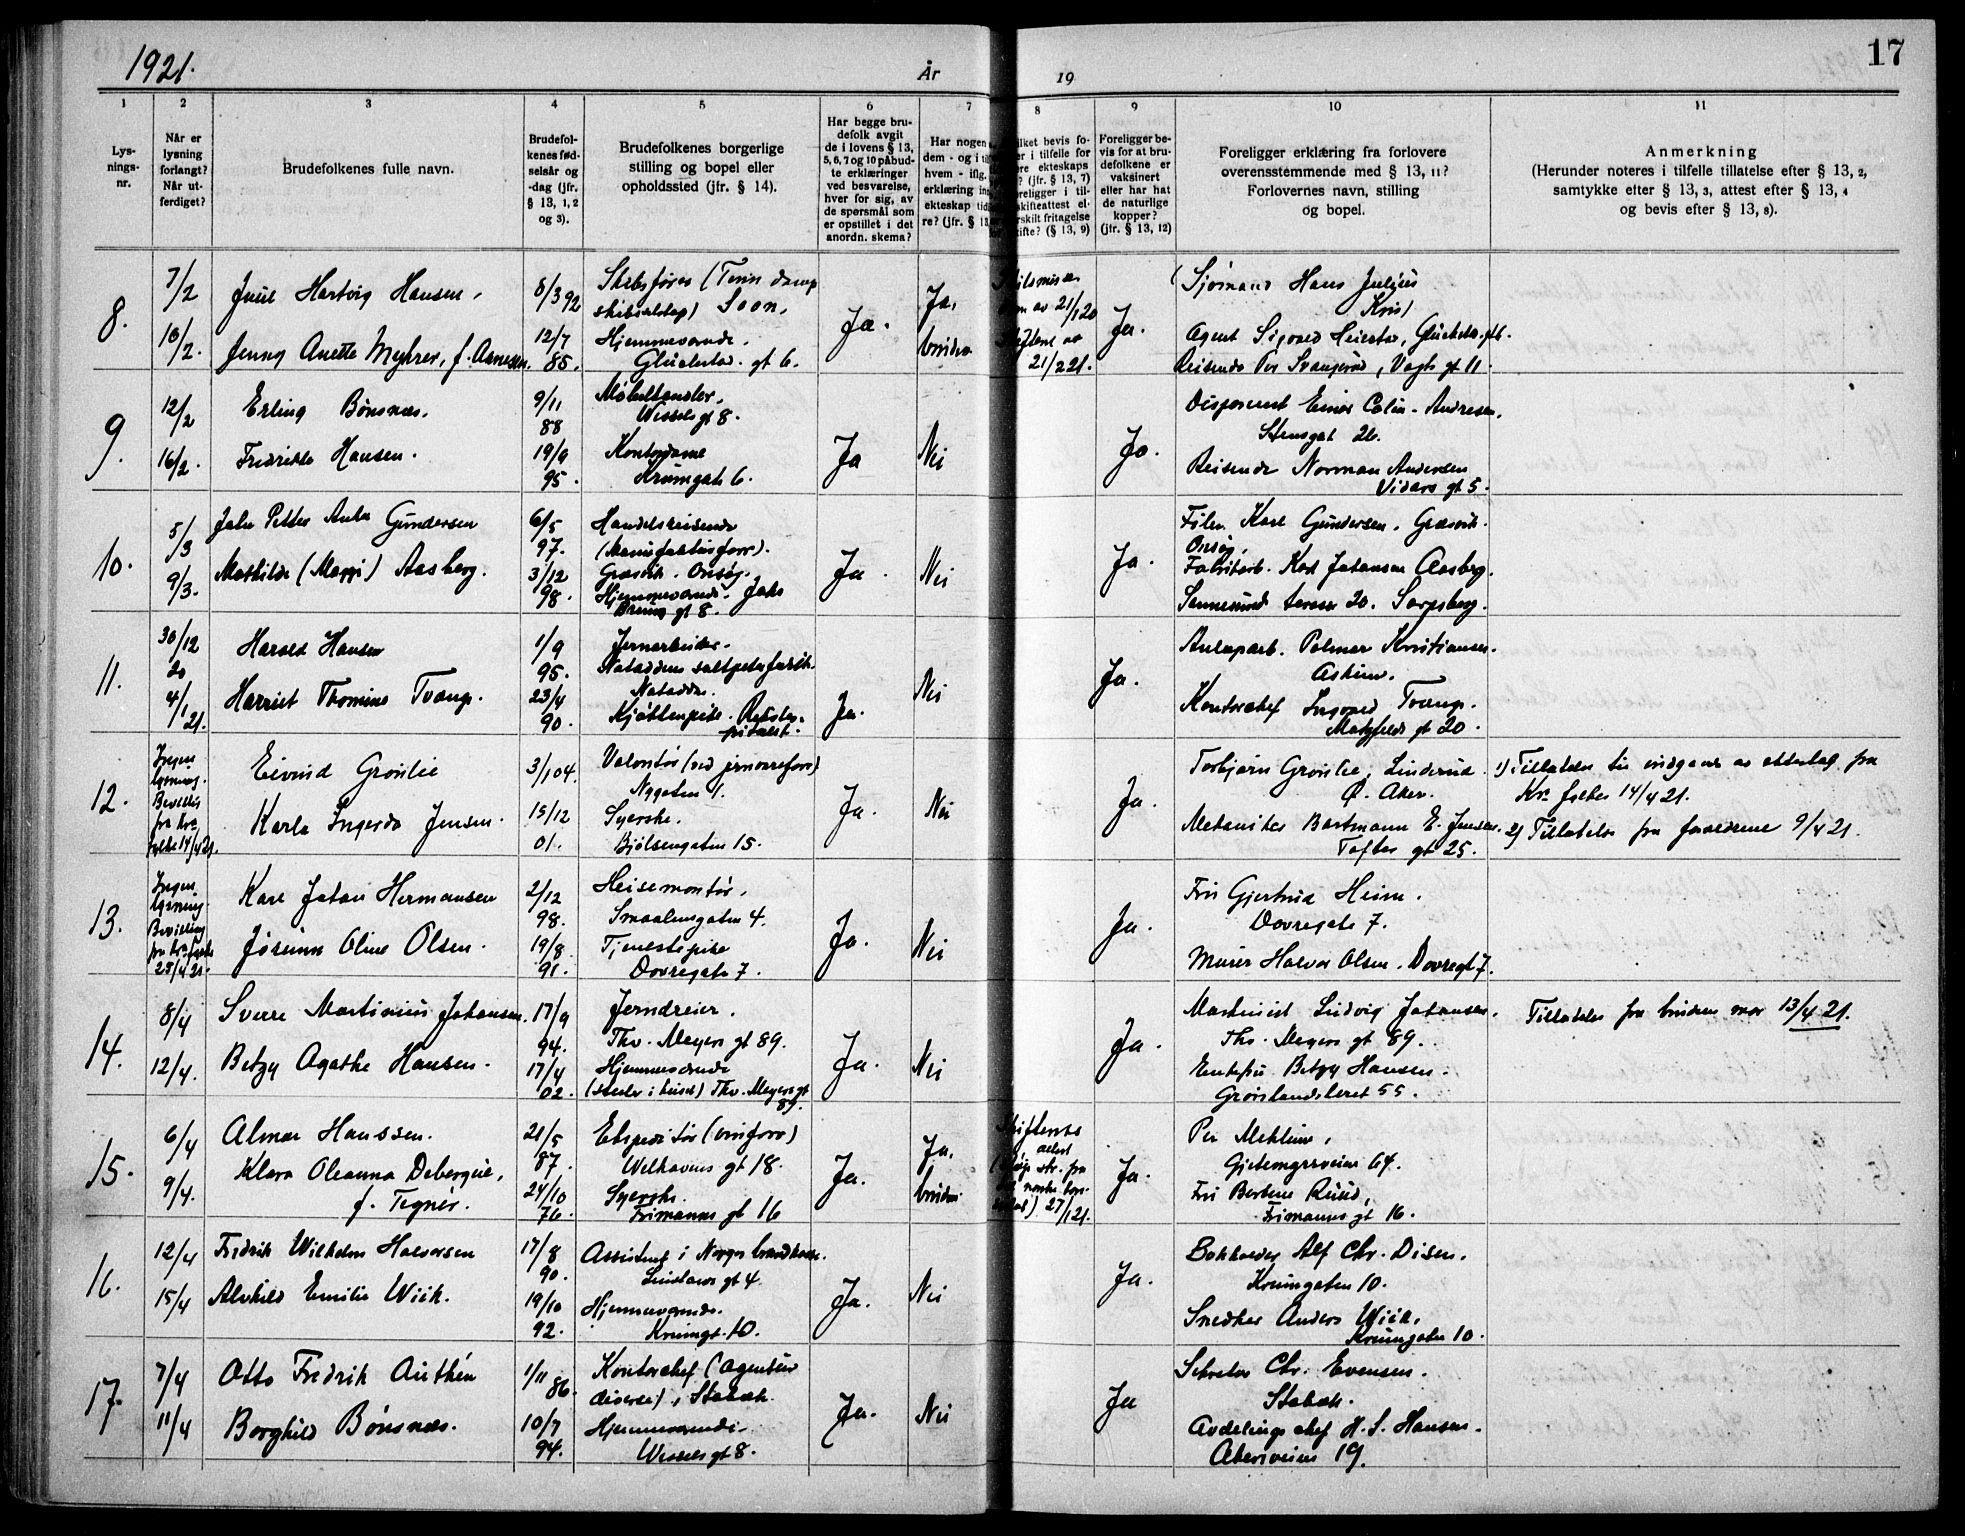 1921.
År
19
17
1
2
3
4
5
6
7
8
9
10
11
Lys-
nings-
nr.
Når er
lysning
forlangt?
Når ut-
ferdiget?
Brudefolkenes fulle navn.
Brudefol-
kenes fød-
selsår og
-dag (jfr.
§ 13, 1, 2
og 3).
Brudefolkenes borgerlige
stilling og bopel eller
opholdssted (jfr. § 14).
Har begge bru-
defolk avgit
de i lovens § 13,
5, 6, 7 og 10 påbud-
te erklæringer
ved besvarelse,
hver for sig, av
de spørsmål som
er opstillet i det
anordn. skema?
Har nogen
dem - og i til
hvem - iflg.
erklæring in
ekteskap tid
re? (jfr. § 13
ilket bevis fo-
er i tilfelle for
ere ekteskaps
? (jfr. § 13, 7)
oreligger i til-
skifteattest el-
rskilt fritagelse
ifte? (§ 13, 9)
Foreligger be-
vis for at bru-
defolkene er
vaksinert
eller har hat
de naturlige
kopper?
(jfr. § 13, 12)
Foreligger erklæring fra forlovere
overensstemmende med § 13, 11?
Forlovernes navn, stilling
og bopel.
Anmerkning
(Herunder noteres i tilfelle tillatelse efter § 13, 2,
samtykke efter § 13, 3, attest efter § 13, 4
og bevis efter § 13, 8).
8.
7/2
10/2.
Juul Hartvig Hansen.
Jenny Anette Myhrer, f. Arnesen.
8/3 92
12/7
85.
Skibsfører (
Soon.
Hjemmeværende.
gt 6.
Ja.
Ja,
bruden
av 21/1 20
21/2 21.
Ja.
Sjømand Hans Julius
Agent Sigvard
Reisende Per Svangerud, Vogts gt 11.
9.
12/2
16/2.
Erling Bønsnæs.
Fredrikke Hansen.
9/11
88
19/9
95.
Møbelhandler.
Wessels gt 8.
Kontordame
Krumgate 6.
Ja
Nei
Ja.
Disponent Einar Colin-Andresen.
Stensgat 26.
Reisende Norman Andersen
Vidars gt 5.
10.
5/3
9/3.
John Petter Anker Gundersen
Mathilde (Maggi) Aasberg.
6/5
97.
3/12
98.
Handelsreisende
(Manufakturforr).
Græsvik. Onsøy.
Hjemmeværende.
gt 8.
Ja.
Nei
Ja.
Karl Gundersen. Græsvik.
Onsøy.
Fabrikarb. Karl Johansen Aasberg.
Sannesund terasse 20. Sarpsborg.
11.
30/12
20
4/1 21.
Harald Hansen
Harriet Thomine Tvang.
1/9
95.
23/4
90.
Jernarbeider.
Notodden saltpeterfabrik.
Notodden.
Kjøkkenpike.
Ja.
Nei
Ja.
Anlægsarb. Palmar Kristiansen.
Askim.
Kontorchef Ingvard Tvang.
gt 20.
12.
Ingen
lysning.
Bevilling
fra Kra
14/4 21.
Eivind Grønlie
Karla Ingerda Jensen.
3/1 04.
15/12
01.
Volontør (ved jernvareforr)
Nygaten 1.
Syerske.
Bjølsengaten 15.
Ja.
Nei
Ja.
Torbjørn Grønlie, Linderud.
Ø. Aker.
Mekaniker Bartmann E. Jensen.
Toftes gt 25.
1) Tillatelse til indgaaelse av ekteskap fra
Kra 14/4 21.
2) Tillatelse fra forældrene 9/4 21.
13.
Ingen
lysning.
Bevilling
25/4 21.
Karl Johan Hermansen
Josefine Oline Olsen.
2/12
98.
19/8
91.
Heisemontør.
Smaalensgaten 4.
Tjenestepike
Dovregate 7.
Ja.
Nei
Ja.
Fru Gjertrud Heim.
Dovregate 7.
Murer Halvor Olsen. Dovregt 7.
14.
8/4
12/4.
Sverre Martinius Johansen.
Betzy Agathe Hansen.
17/9
94.
17/4
02.
Jerndreier.
Thv. Meyers gt 89.
Hjemmeværende
(steller i huset) Thv. Meyers gt
89.
Ja.
Nei
Ja.
Maskinist Ludvig Johansen.
Thv. Meyers gt 89.
Enkefru Betzy Hansen.
Grønlandsleret 55.
Tillatelse fra brudens mor 13/4 21.
15.
6/4
9/4.
Almar Hanssen.
Klara Oleanna Debergue,
f. Tegner.
21/5
87.
24/10
76.
Ekspeditør (vinforr)
Welhavens gt 18.
Syerske.
Frimanns gt 16
Ja.
Ja.
bruden
27/1 21.
Ja.
Per Mehlum,
Gjetemyrsveien 64.
Fru Ruud,
Frimanns gt 16.
16.
12/4
15/4
Fredrik Wilhelm Halvorsen
Alvhild Emilie Wiik.
17/8
90.
19/10
92.
Assistent i Norges brandkasse.
Lindams gt 4.
Hjemmeværende.
Krumgt. 10.
Ja.
Nei
Ja.
Bokholder Alf Chr. Disen.
Krumgaten 10.
Snedker Anders Wiik,
Krumgaten 10.
17.
7/4
11/4
Otto Fredrik Authén
Borghild Bønsnæs.
1/11
86.
10/7
94.
Kontorchef (agentur
diverse), Stabæk.
Hjemmeværende.
Wessels gt 8.
Ja.
Nei
Ja
Sekretær Chr. Evensen.
Stabæk.
Avdelingschef H. S. Hansen.
Akersveien 19.